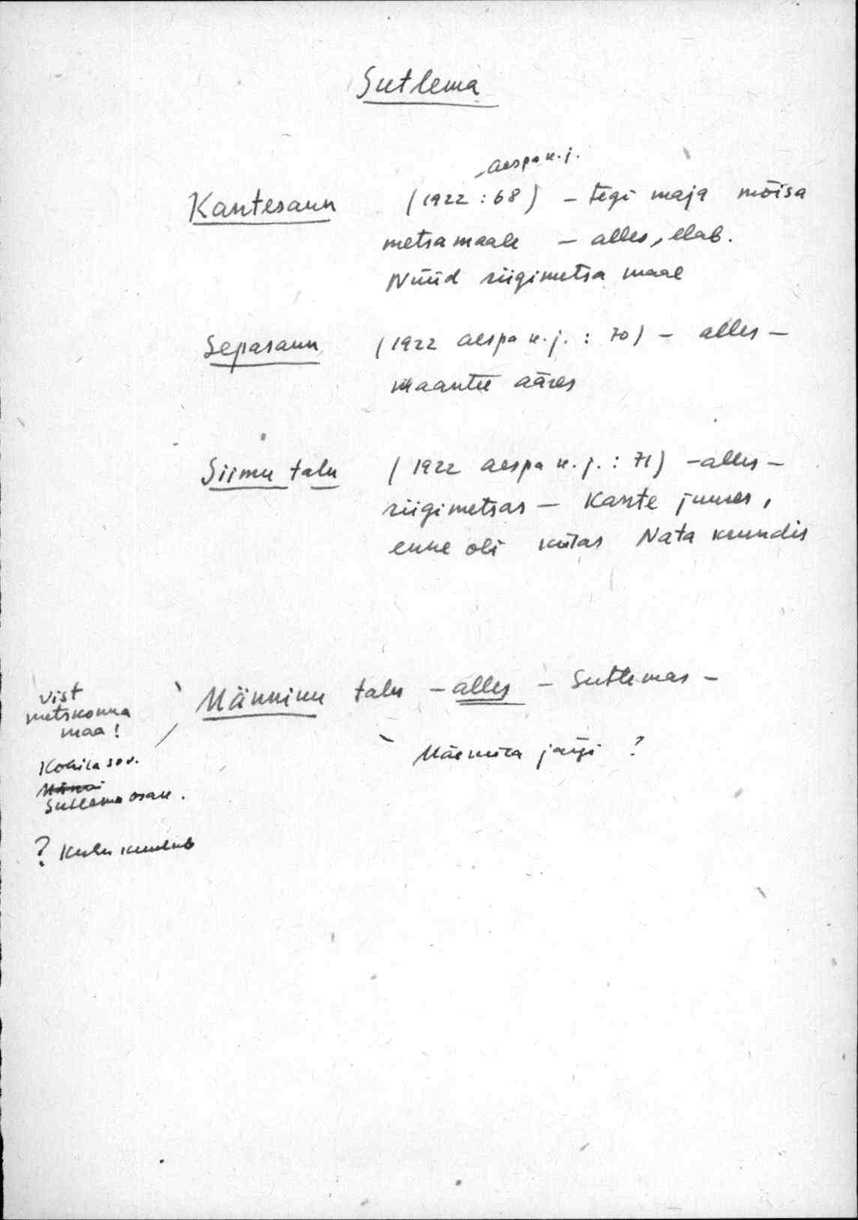 Sutlema
Aespa k.j.
Kantesaun (1922 : 68) – tegi maja mõisa
metsamaale – alles, elab.
Nüüd riigimetsa maal
Sepasaun (1922 Aespa k.j. : 70) – alles –
maantee ääres
Siimu talu (1922 Aespa k.j. : 71) – alles –
riigimetsas – Kante juures,
enne oli külas Nata krundis
Männinu talu – alles – Sutlemas –
järgi ?
Vist
metskonna
maa !
Kohila sov.
Sutlema osak.
? Kuhu kuulub